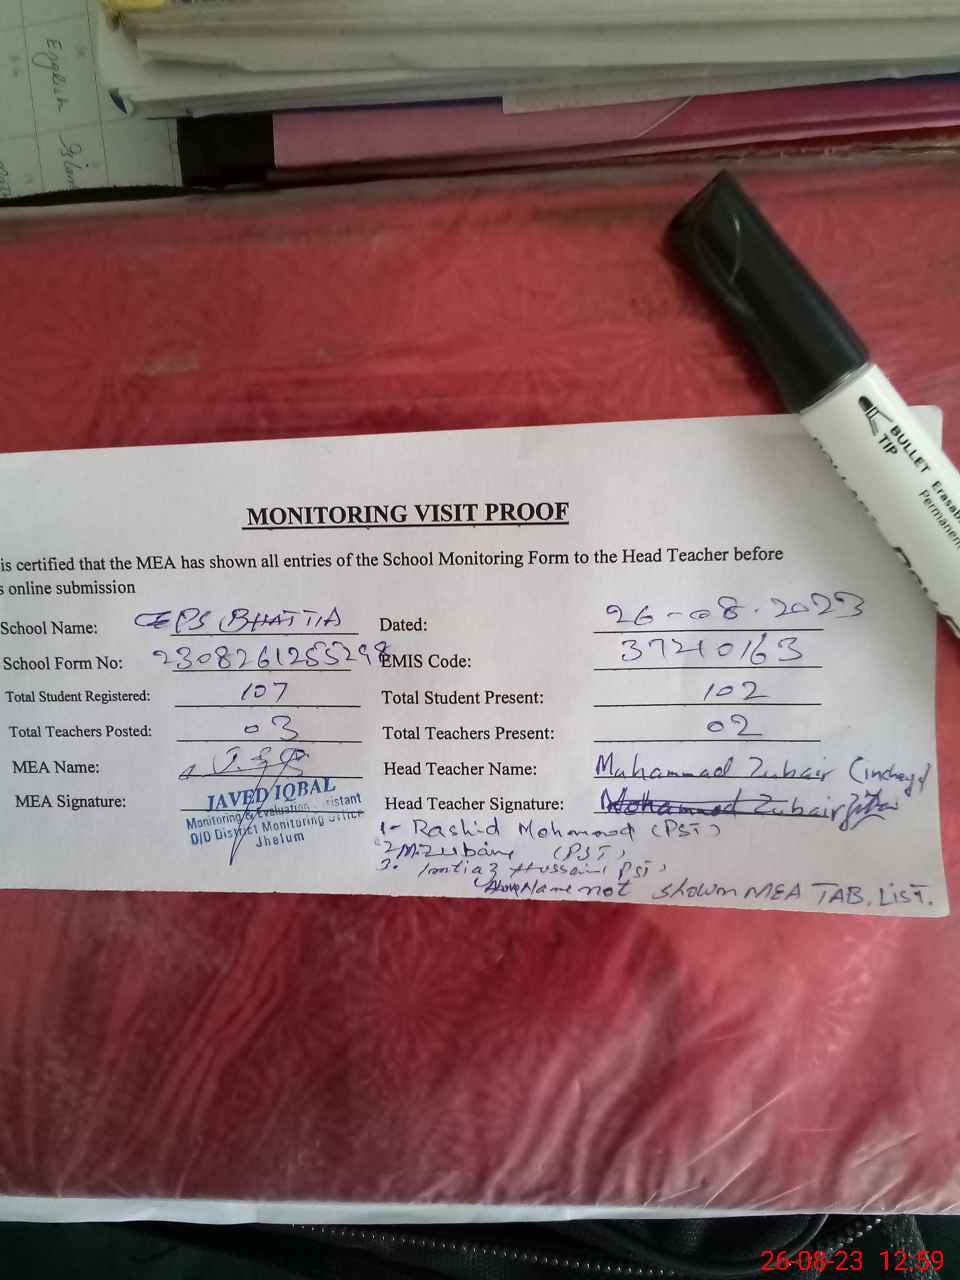 English
MONITORING VISIT PROOF
is certified that the MEA has shown all entries of the School Monitoring Form to the Head Teacher before
s online submission
School Name: GPS BHATTIA Dated: 26-08-2023
School Form No: 230826125529 EMIS Code: 37210163
Total Student Registered: 107 Total Student Present: 102
Total Teachers Posted: 03 Total Teachers Present: 02
MEA Name: Head Teacher Name: Muhammad Zubair
MEA Signature: Head Teacher Signature: Mohammad Zubair
JAVED IQBAL
Monitoring & Evaluation Assistant
O/O District Monitoring Office
Jhelum
1- Rashid Mohammood (PST)
2 M. Zubair (PST)
3. Imtiaz Hussain PST
Above Name not shown MEA TAB. List.
BULLET TIP
Erasab
Permanen
26-08-23 12:59